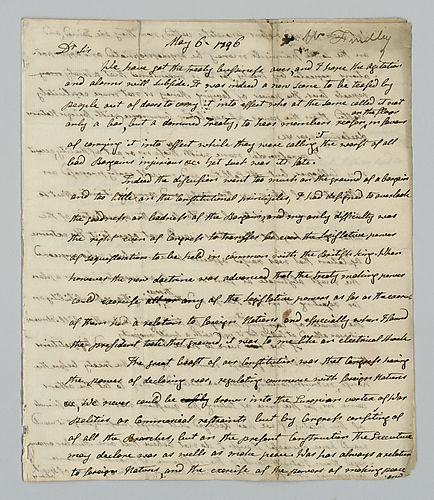 Mr Findley
May 6 1796
Dr Sr
We have got the treaty business over, and I hope the agitation
and alarms will subside. It was indeed a new scene to be teased by
people out of doors to carry it into effect who at the same called it not
on the floor
only a bad, but a damned treaty, to hear members reason in favour
it
of carrying it into effect while they were calling the worst of all
bad Bargains injurious &c yet such was its fate.
Indeed the discussion went too much on the ground of a bargain
and too little on the Constitutional principles, I had designed to overlook
the goodness or badness of the Bargain and my only difficulty was
the right even of Congress to transfer the Legislative power
of sequestration to be held in common with the British king. When
however the new doctrine was advanced that the treaty making power
could exercise any of the legislative powers as far as the exercise
of them had a relation to foreign Nations, and especially when I found
the president take that ground, it was to me like an electrical shock
The great boast of our Constitution was that Congress having
the powers of declaring war, regulating commerce with foreign Nations
&c, We never could be drawn into the European vortex of War
Politics or Commercial restraints but by Congress consisting of
of all the Branches, but on the present construction the Executive
may declare war as well as make peace. War has always a relation
to foreign Nations, and the exercise of the powers of making peace
and